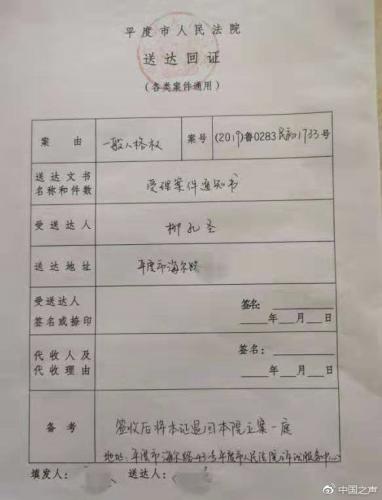 平度市人民法院
送达回证
(各类案件通用)
案由 一般人格权 案号 (2017)鲁0283民初1733号
送达文书
名称和件数 受理案件通知书
受送达人 柳孔圣
送达地址 平度市海尔路
受送达人
签名或捺印 签名:
年 月 日
代收人及
代收理由 签名:
年 月 日
备考 签收后将本证退回本院立案一庭
地址:平度市海尔路43号平度市人民法院诉讼服务中心
填发人: 送达人:
@中国之声